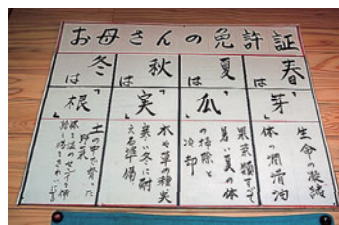 お母さんの免許証
春は「芽」
生命の凝縮
体の潤滑油
夏は「瓜」
果菜類すべて
暑い夏の体
の掃除と
冷却
秋は「実」
木や草の種実
寒い冬に耐
える準備
冬は「根」
土の中で育った
野菜